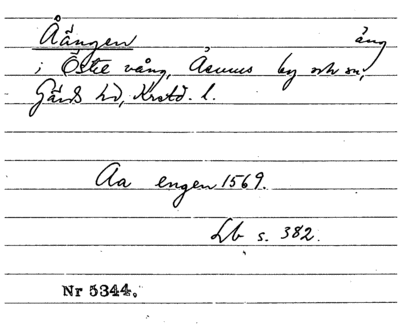 Åängen äng
i Östre vång, Åsums by och sn,
Gärds hd, Krstd. l.
Aa engen 1569.
Lb s. 382.
Nr 5344.